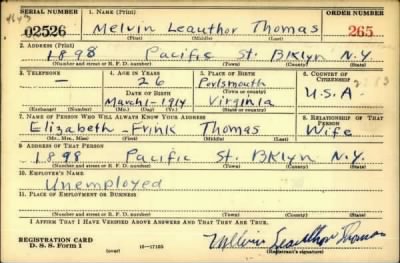 SERIAL NUMBER 1. NAME (Print) ORDER NUMBER
02526 Melvin Leauthor Thomas 265
(First) (Middle) (Last)
2. ADDRESS (Print)
1898 Pacific St. BKlyn N.Y.
(Number and street or R. F. D. number) (Town) (County) (State)
3. TELEPHONE 4. AGE IN YEARS 5. PLACE OF BIRTH 6. COUNTRY OF CITIZENSHIP
— 26 Portsmouth
(Town or county)
DATE OF BIRTH
March-1-1914 Virginia U.S.A.
(Exchange) (Number) (Mo.) (Day) (Yr.) (State or country)
7. NAME OF PERSON WHO WILL ALWAYS KNOW YOUR ADDRESS 8. RELATIONSHIP OF THAT PERSON
Elizabeth - Frink Thomas Wife
(Mr., Mrs., Miss) (First) (Middle) (Last)
9. ADDRESS OF THAT PERSON
1898 Pacific St. BKlyn N.Y.
(Number and street or R. F. D. number) (Town) (County) (State)
10. EMPLOYER'S NAME
Unemployed
11. PLACE OF EMPLOYMENT OR BUSINESS
(Number and street or R. F. D. number) (Town) (County) (State)
I AFFIRM THAT I HAVE VERIFIED ABOVE ANSWERS AND THAT THEY ARE TRUE.
REGISTRATION CARD
D. S. S. Form 1 (over) 16—17105 Melvin Leauthor Thomas
(Registrant's signature)